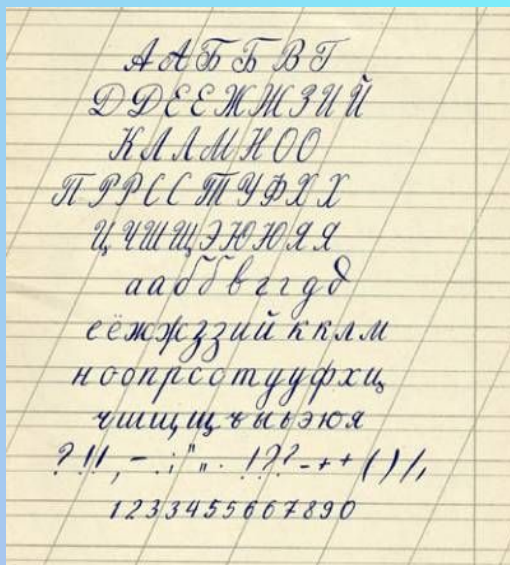 ААББВГ
ДДЕЕЖЖЗИЙ
КЛЛМНОО
ПРРССТУФХХ
ЦЧШЩЭЮЮЯЯ
ааббвггдд
еёжжззий кклм
нооnрсотууфхц
чшищщъыьэюя
?!!,-.:;"„.!??-++()/,
1233455667890